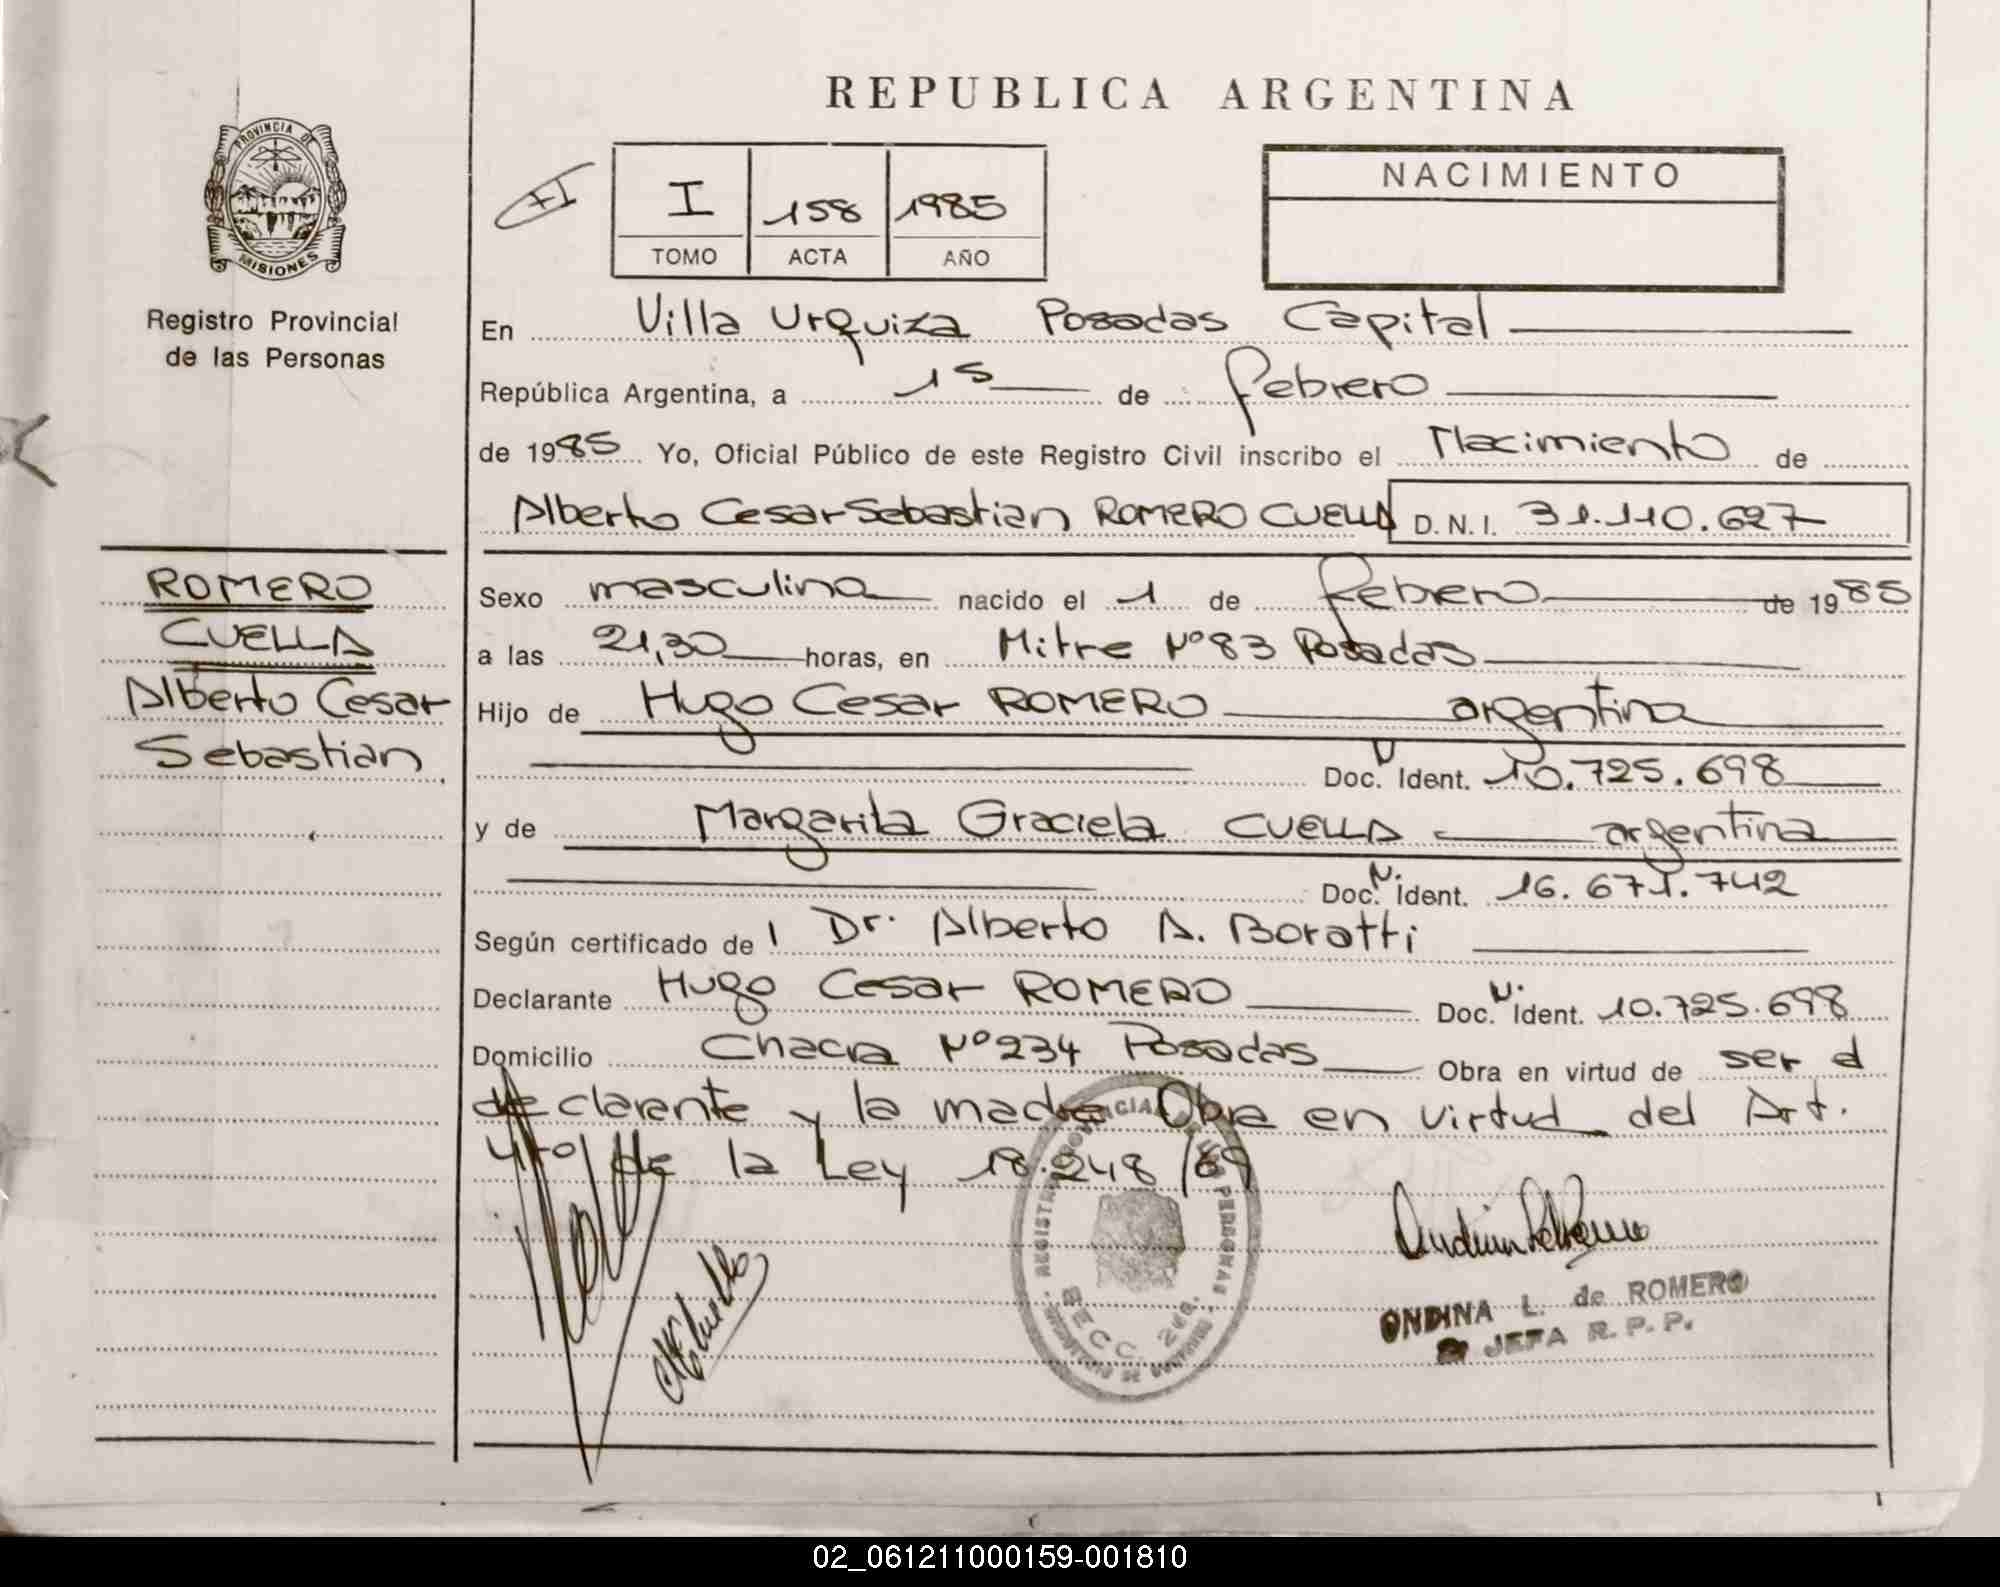 REPUBLICA ARGENTINA
PROVINCIA DE
MISIONES
Registro Provincial
de las Personas
I
I 158 1985
TOMO ACTA AÑO
NACIMIENTO
En Villa Urquiza Posadas Capital
República Argentina, a 15 de febrero
de 1985 Yo, Oficial Público de este Registro Civil inscribo el Nacimiento de
Alberto Cesar Sebastian ROMERO CUELLA D.N.I. 31.110.627
ROMERO
CUELLA
Alberto Cesar
Sebastian
Sexo masculino nacido el 1 de febrero de 1985
a las 21,30 horas, en Mitre Nº 83 Posadas
Hijo de Hugo Cesar ROMERO argentina
Doc. Ident. 10.725.698
y de Margarita Graciela CUELLA argentina
Doc. N. Ident. 16.671.742
Según certificado de Dr. Alberto A. Boratti
Declarante Hugo Cesar ROMERO Doc. N. Ident. 10.725.698
Domicilio Chacra Nº 234 Posadas Obra en virtud de ser el
declarante y la madre Obra en virtud del Art.
4to/ de la Ley 18.248/69
REGISTRO PROVINCIAL DE LAS PERSONAS
SECC. 2da.
ONDINA L. de ROMERO
JEFA R.P.P.
02_061211000159-001810